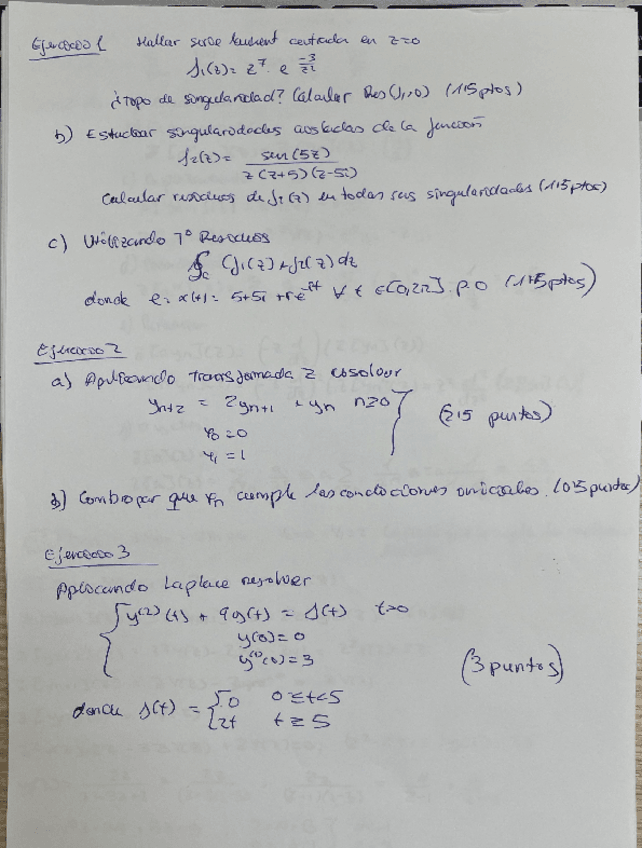 Ejercicio 1 Hallar serie laurent centrada en z=0
f₁(z) = z⁷ · e^(-3/z²)
¿Tipo de singularidad? Calcular Res(f₁,0) (1'5 ptos)
b) Estudiar singularidades aisladas de la función
f₂(z) = sen(5z) / z(z+5)(z-5i)
Calcular residuos de f₂(z) en todas sus singularidades (1'5 ptos)
c) Utilizando Tº Residuos
∮c (f₁(z) + f₂(z) dz
donde c = α(t) = 5+5i + r e^(-it) ∀ t ∈ [0,2π]. (1'5 ptos)
Ejercicio 2
a) Aplicando transformada Z resolver
yn+2 = 2yn+1 + yn n≥0
y₀ = 0
y₁ = 1
(2'5 puntos)
b) Comprobar que yn cumple las condiciones iniciales. (0'5 puntos)
Ejercicio 3
Aplicando Laplace resolver
y⁽²⁾(t) + 9y(t) = f(t) t>0
y(0) = 0
y⁽¹⁾(0) = 3
(3 puntos)
donde f(t) = { 0 0≤t<5
2t t≥5